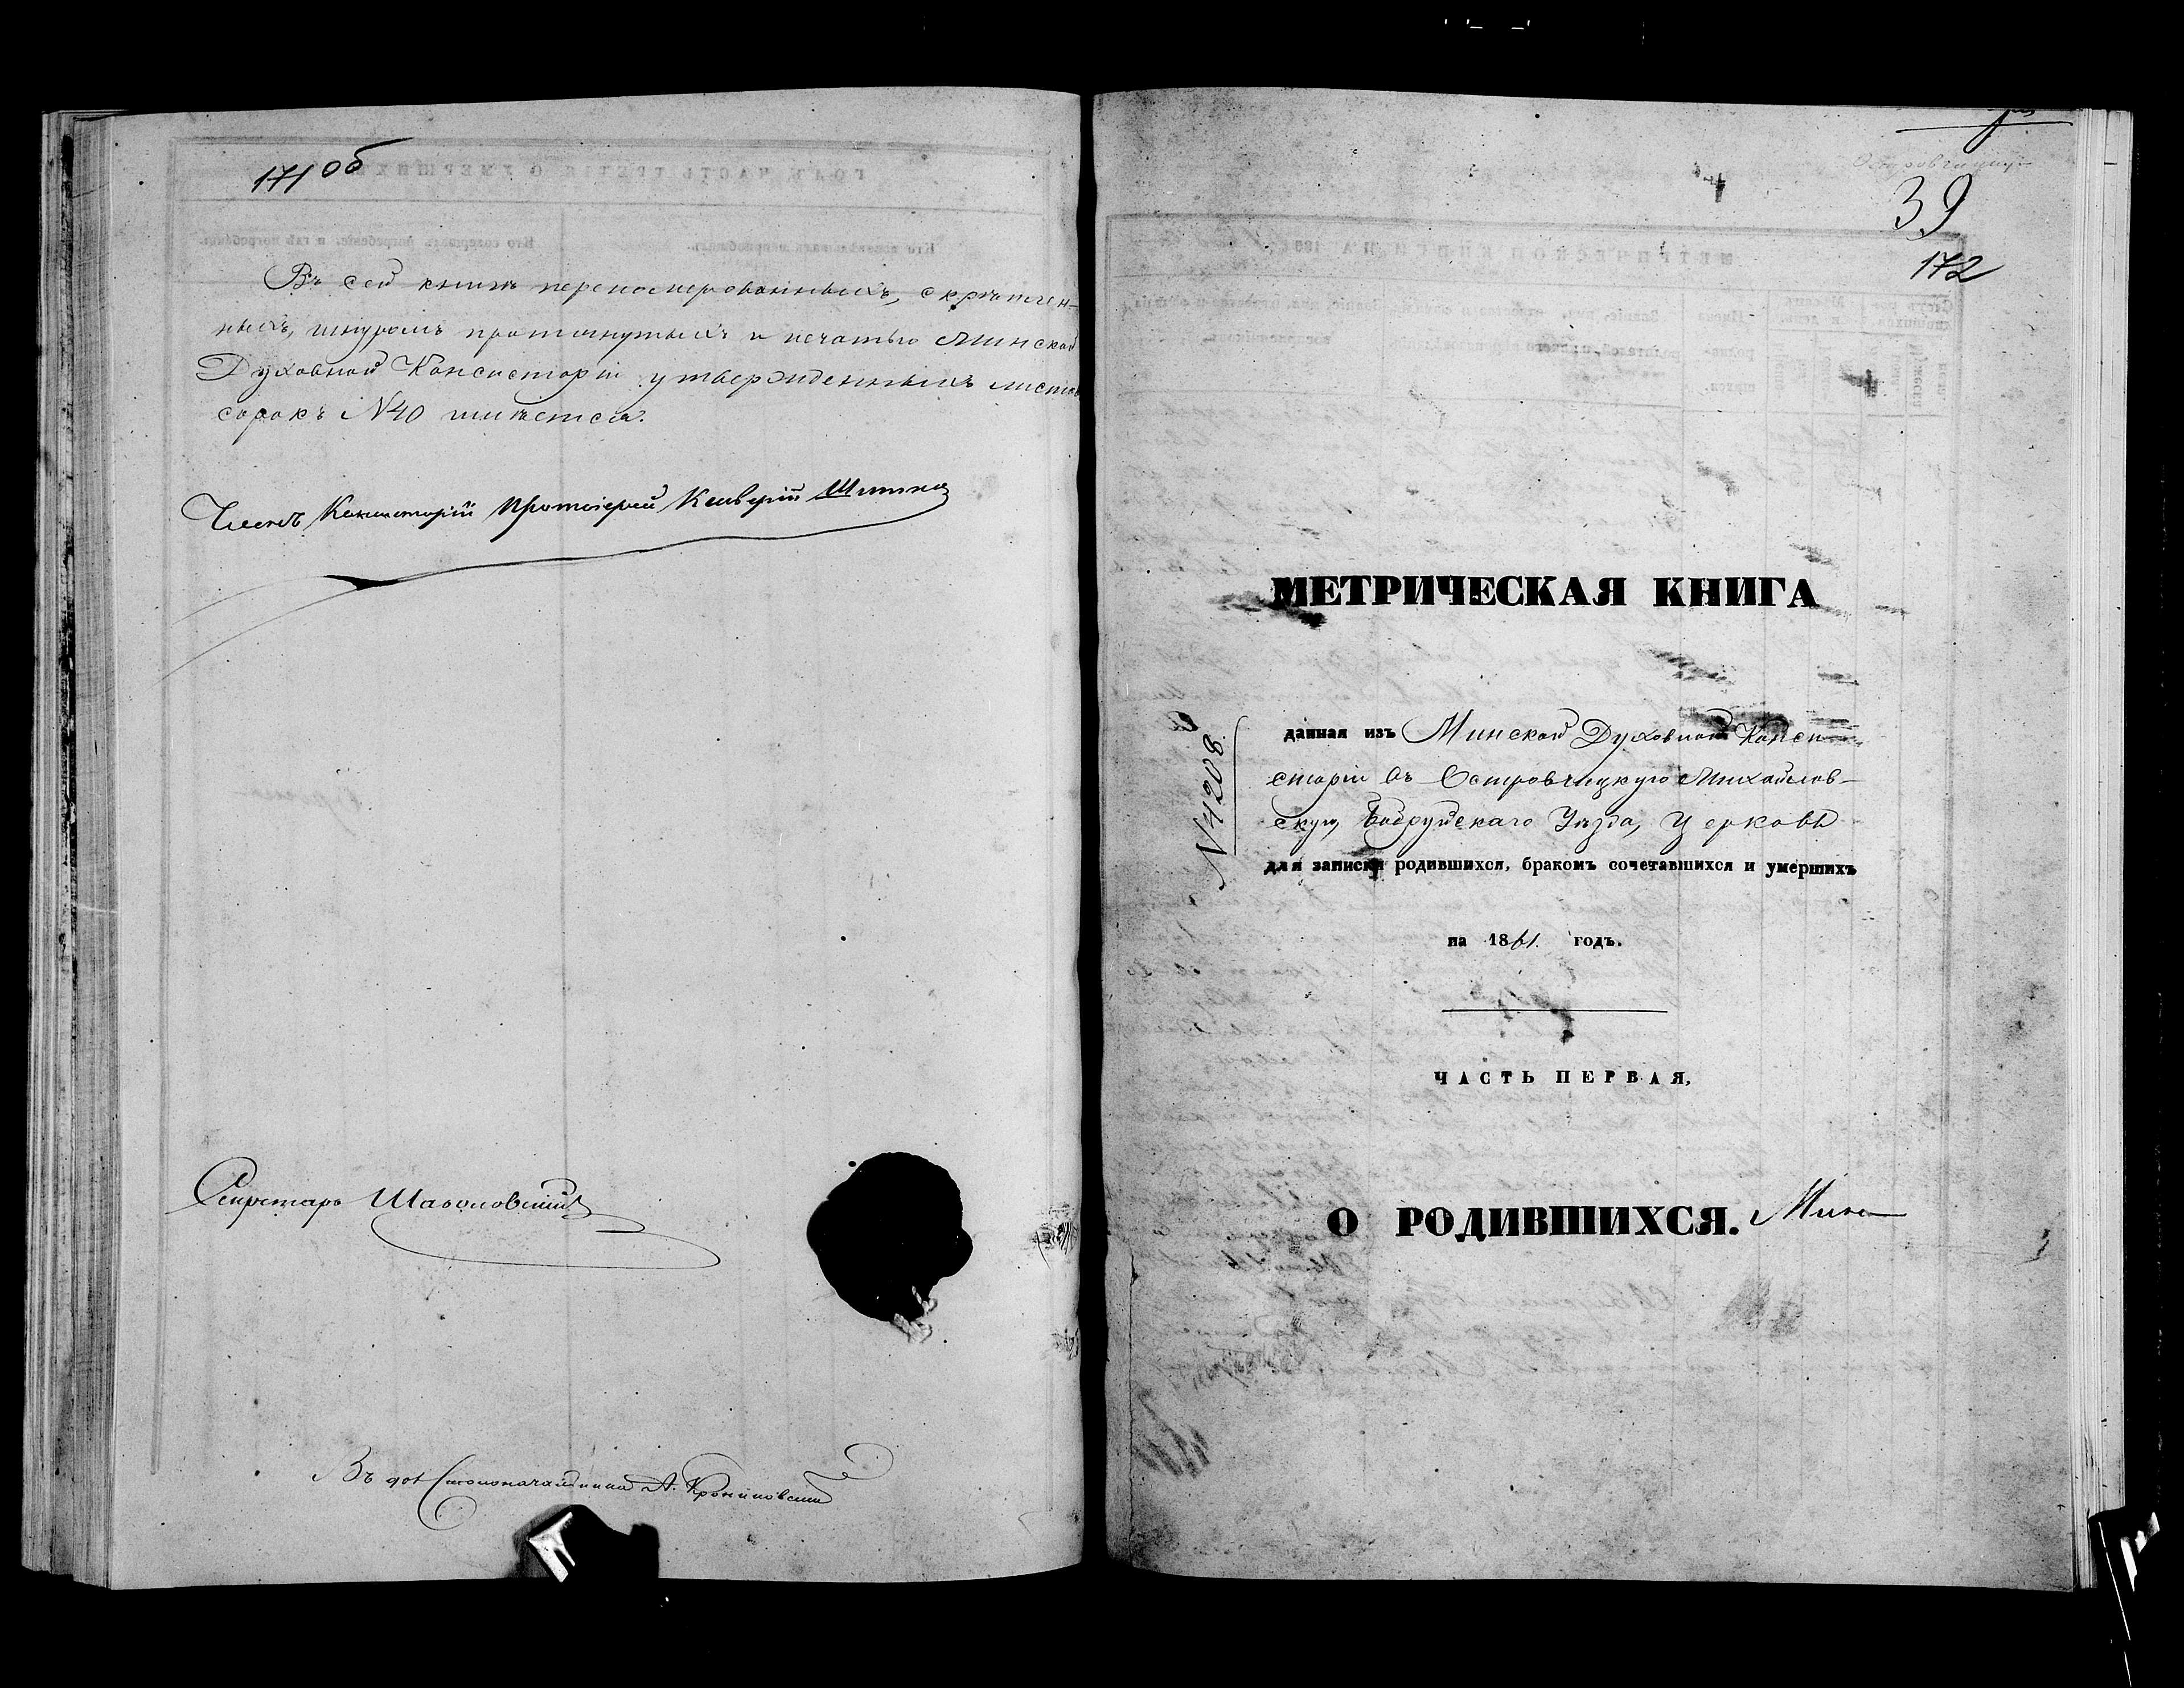 171 об
Въ сей книгѣ перенумерованныхъ, скрѣплен-
ныхъ, шнуромъ протянутыхъ и печатью Минской
Духовной Консисторіи утвержденныхъ листовъ
сорокъ №40 имѣется.
Членъ Консисторіи Протоіерей
Секретарь
Въ дол Столоначальника А.
39
172
МЕТРИЧЕСКАЯ КНИГА
№4208.
данная изъ Минской Духовной Конси-
сторіи въ Островчицкую Михайлов-
скую, Бобруйскаго Уѣзда, церковь
для записки родившихся, бракомъ сочетавшихся и умершихъ
на 1861 годъ.
ЧАСТЬ ПЕРВАЯ,
О РОДИВШИХСЯ.